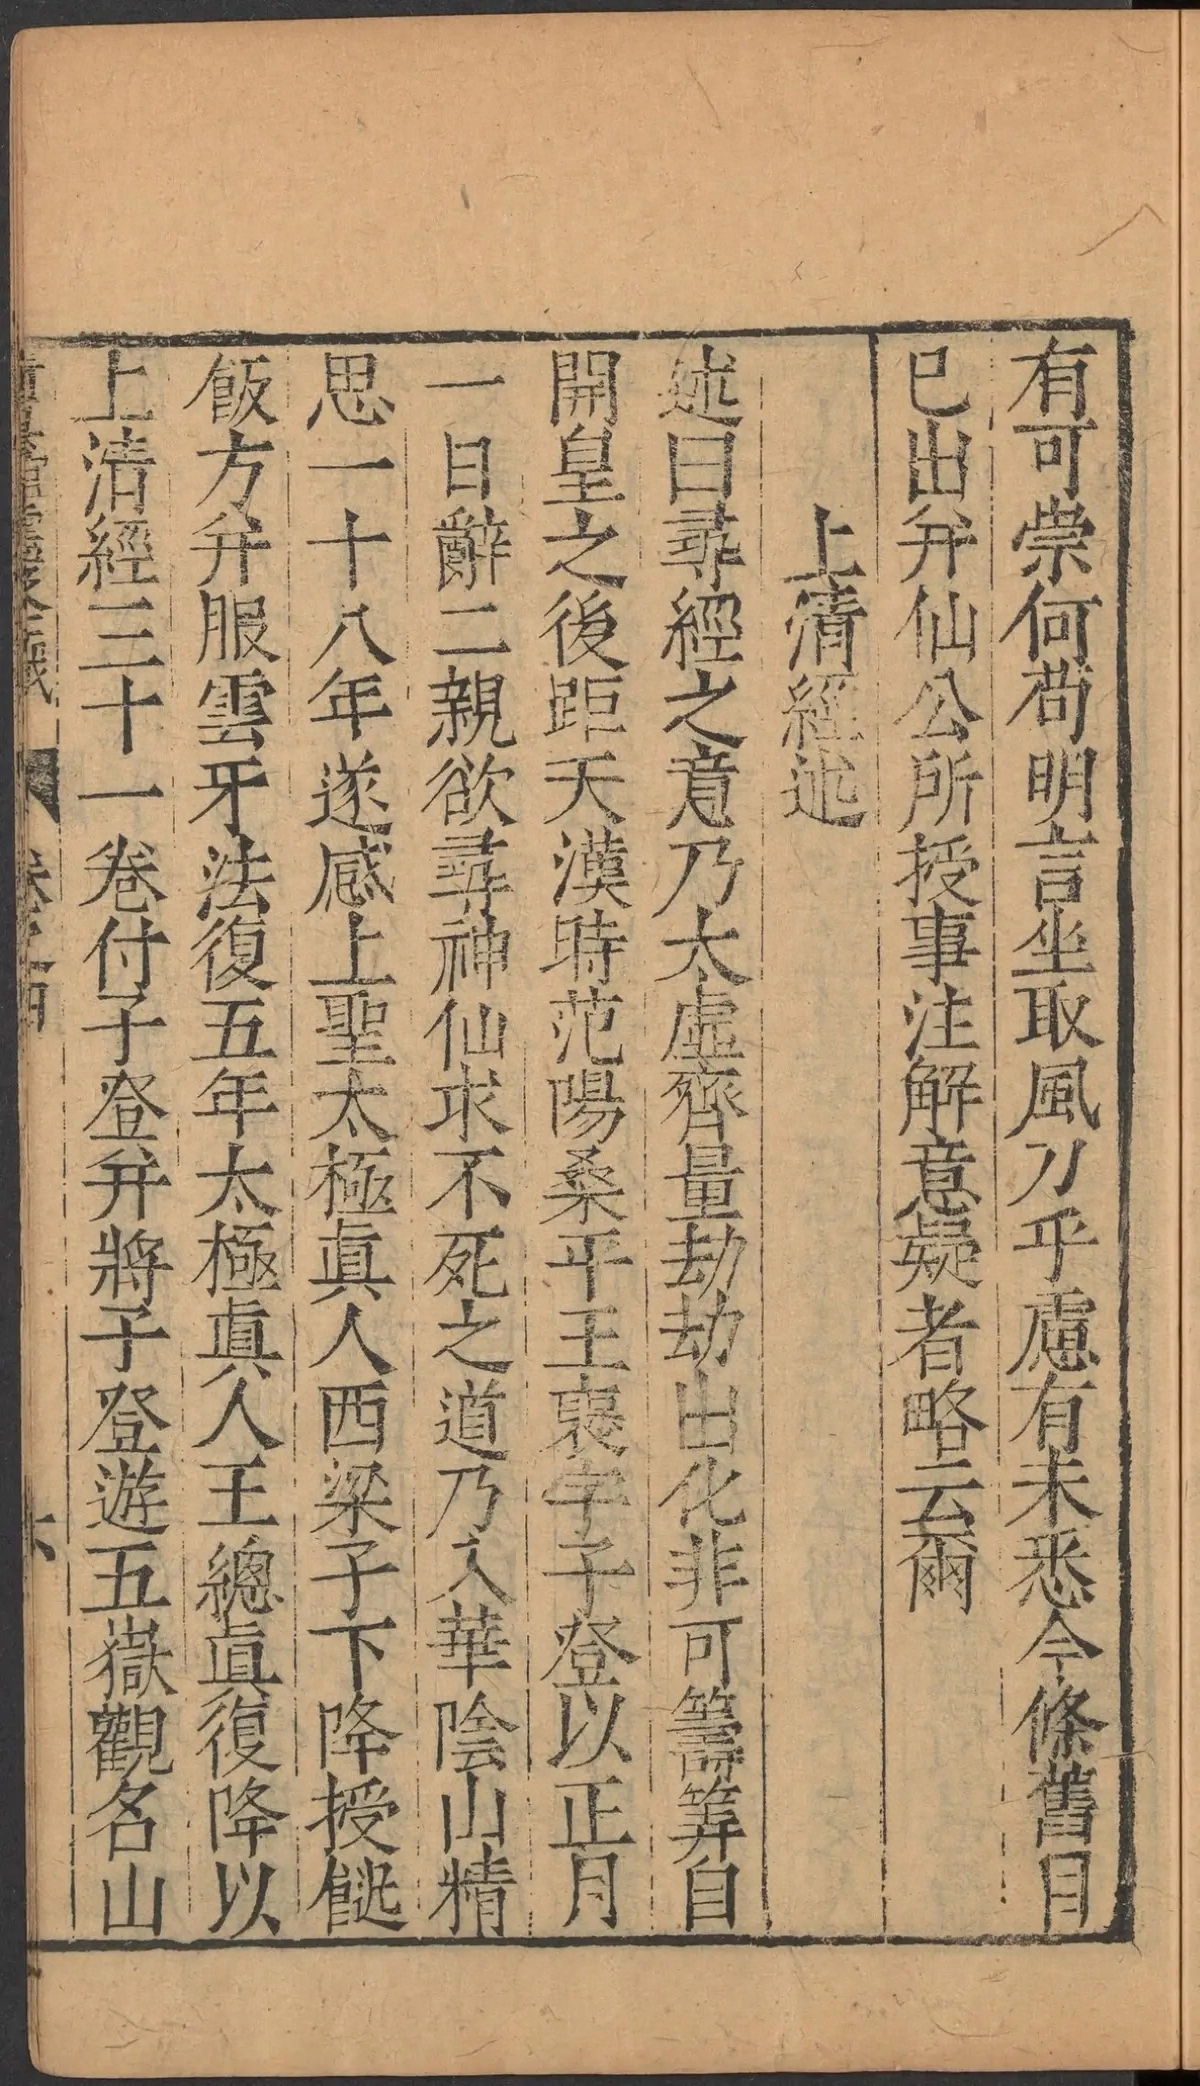 有可崇何苟明言坐取風刀乎慮有未悉今條舊目
已出并仙公所授事注解意疑者略云爾
上清經述
述曰尋經之意乃太虛齊量劫劫出化非可籌筭自
開皇之後距天漢時范陽桑平王襃字子登以正月
一日辭二親欲尋神仙求不死之道乃入華陰山精
思一十八年遂感上聖太極眞人西梁子下降授䭀
飯方并服雲牙法復五年太極眞人王總眞復降以
上清經三十一卷付子登并將子登遊五嶽觀名山